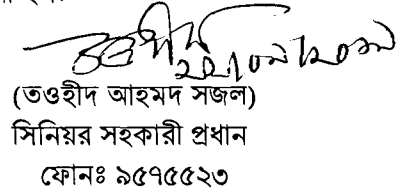 (তওহীদ আহমদ সজল)
সিনিয়র সহকারী প্রধান
ফোনঃ ৯৫৭৫৫২৩